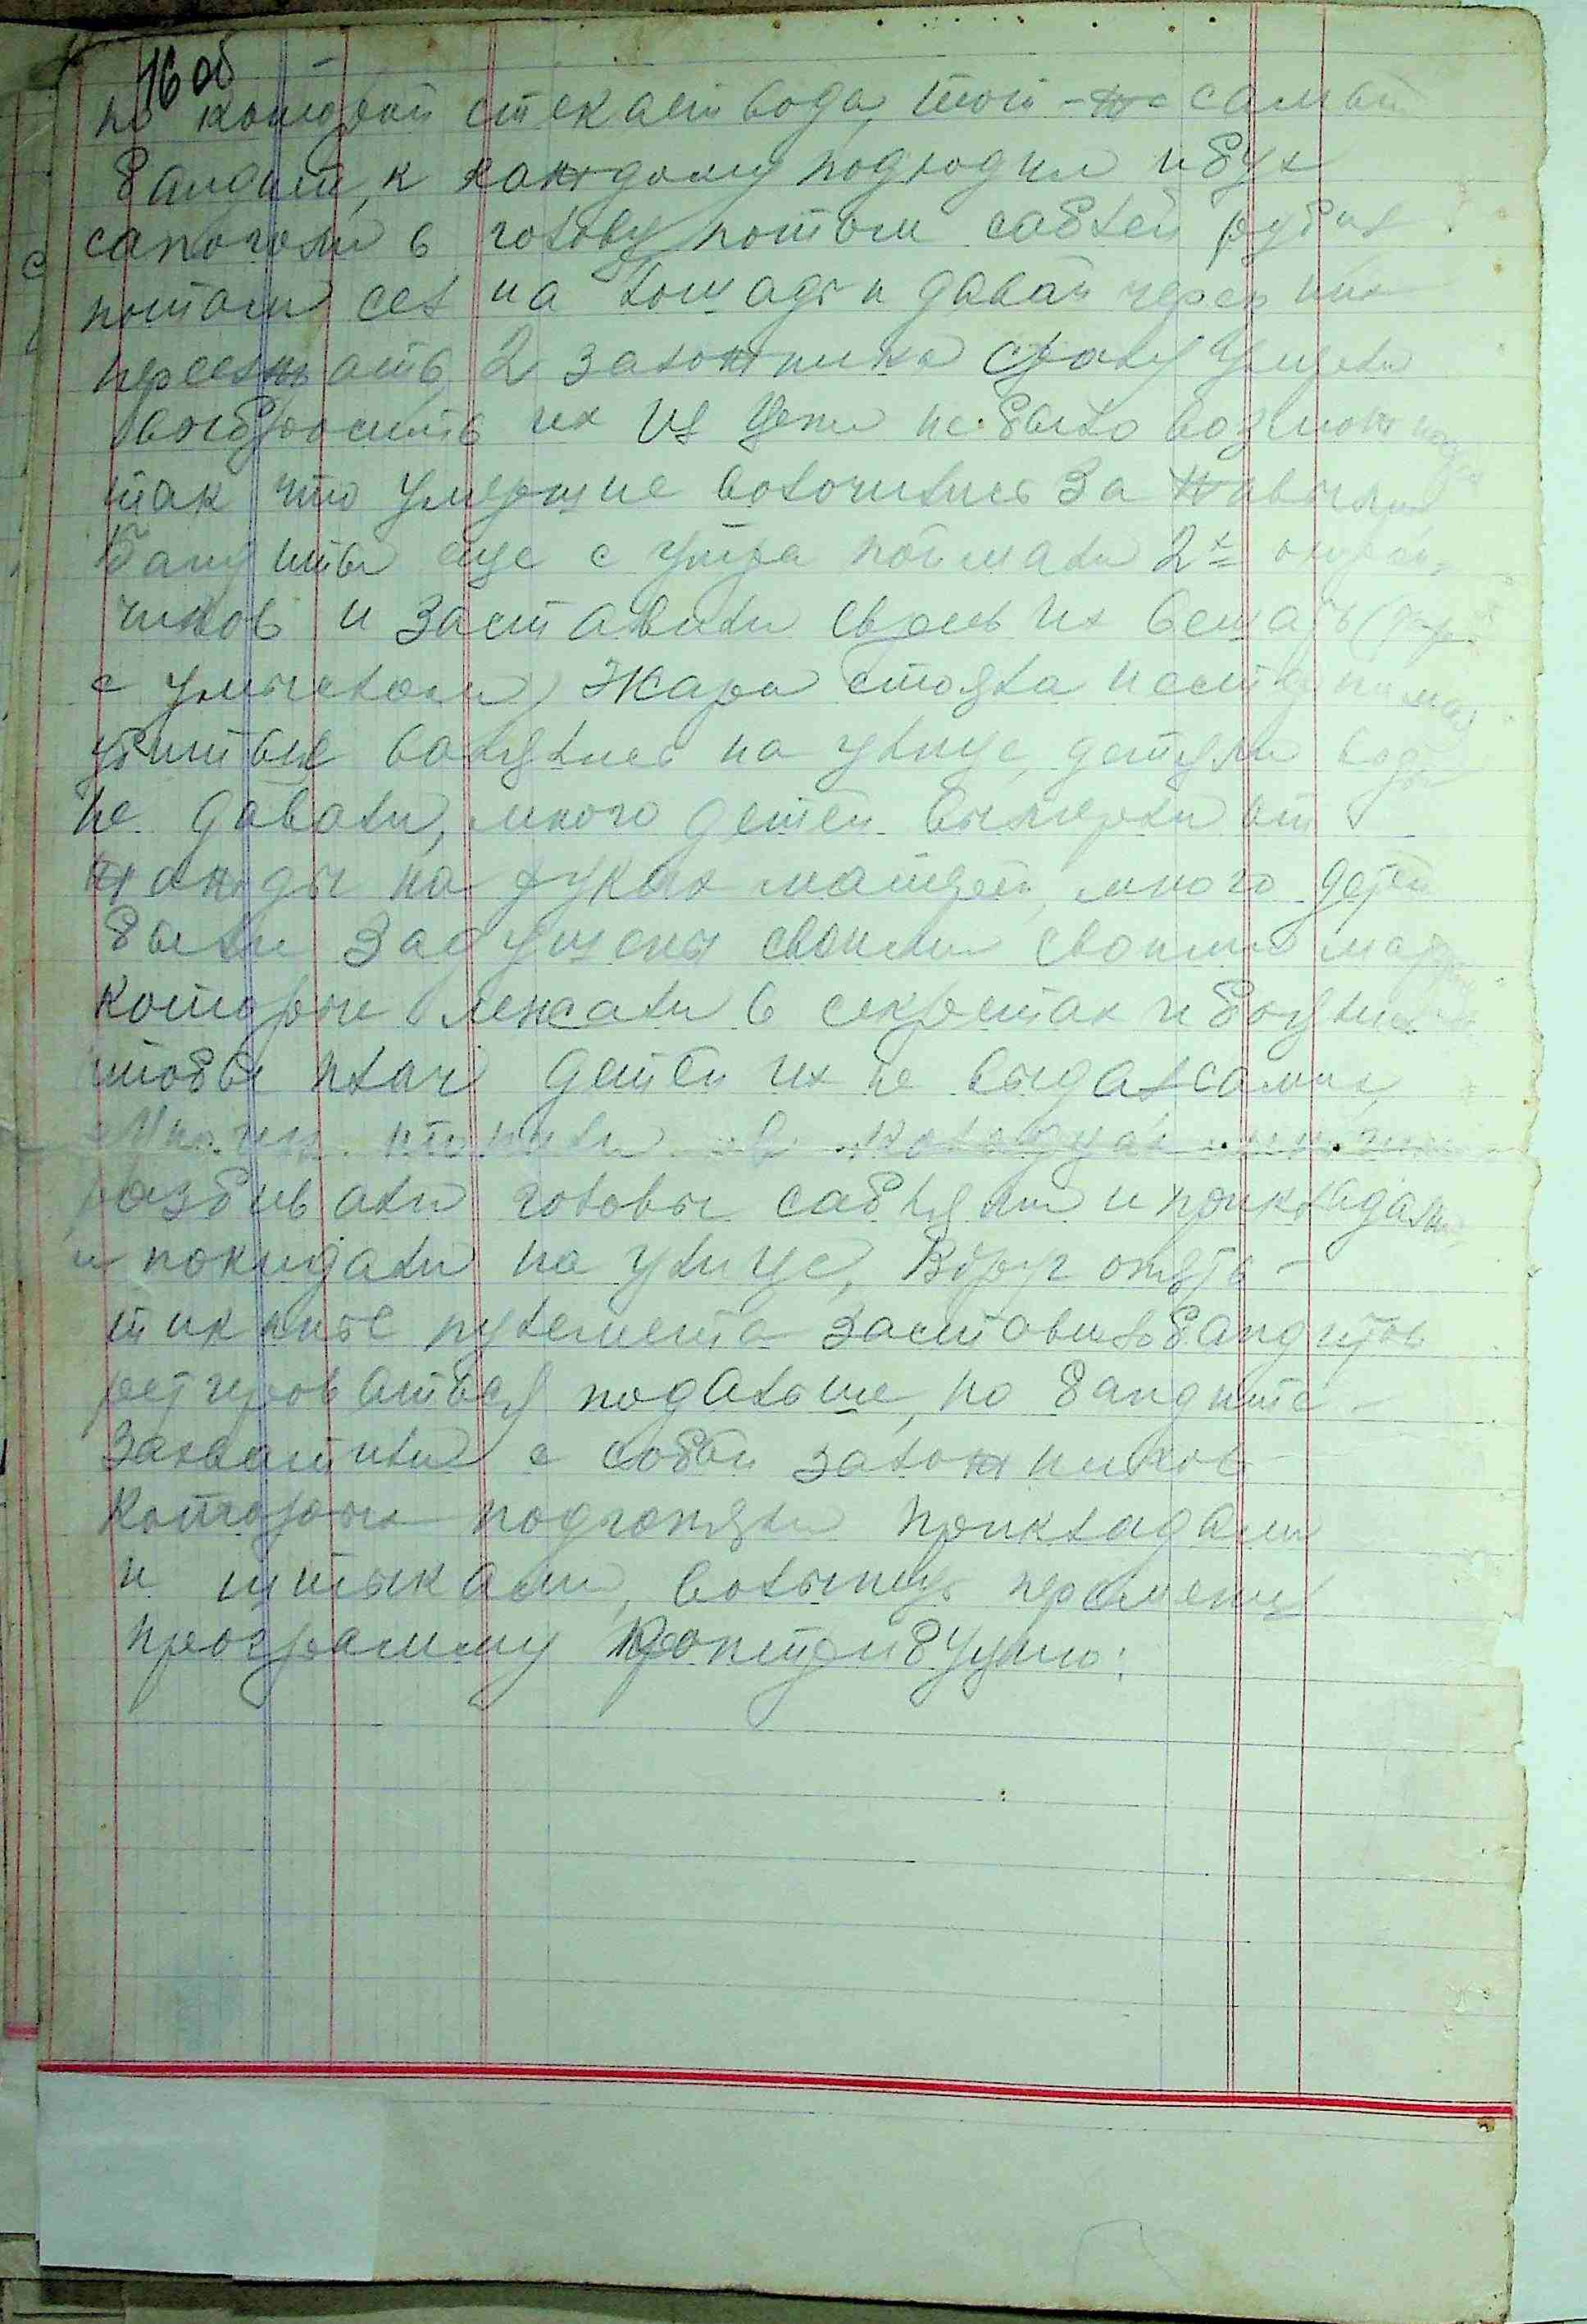 16 об
по которой стекает вода, той-же самый
бандит, к каждому подходил и бух
сапогом в голову потом саблей рубил
потом сел на лошадь и давай через них
переезжать, 2 заложника сразу умерли
выбросить их из цепи не было возможно
так что умершие волочились за живыми
бандиты еще с утра поймали 2х
и заставили своеь их вешать
с умыслом) Жара стояла
убитые валялись на улице, детям воды
не давали, много детей вымерли от
жажды на руках матерей, много детей
были задушены своими своими
которые лежали в секретах и боялись
чтобы плач детей их не выдал самих,
разбивали головы саблями и прикладами
и покидали на улице, Вдруг опять-
тиканье пулемета заставило бандитов
ретироваться подальше, но бандите-
захватили с собой заложников
которых подгоняли прикладами
и штыками, волынцы
программу контрибуцию: